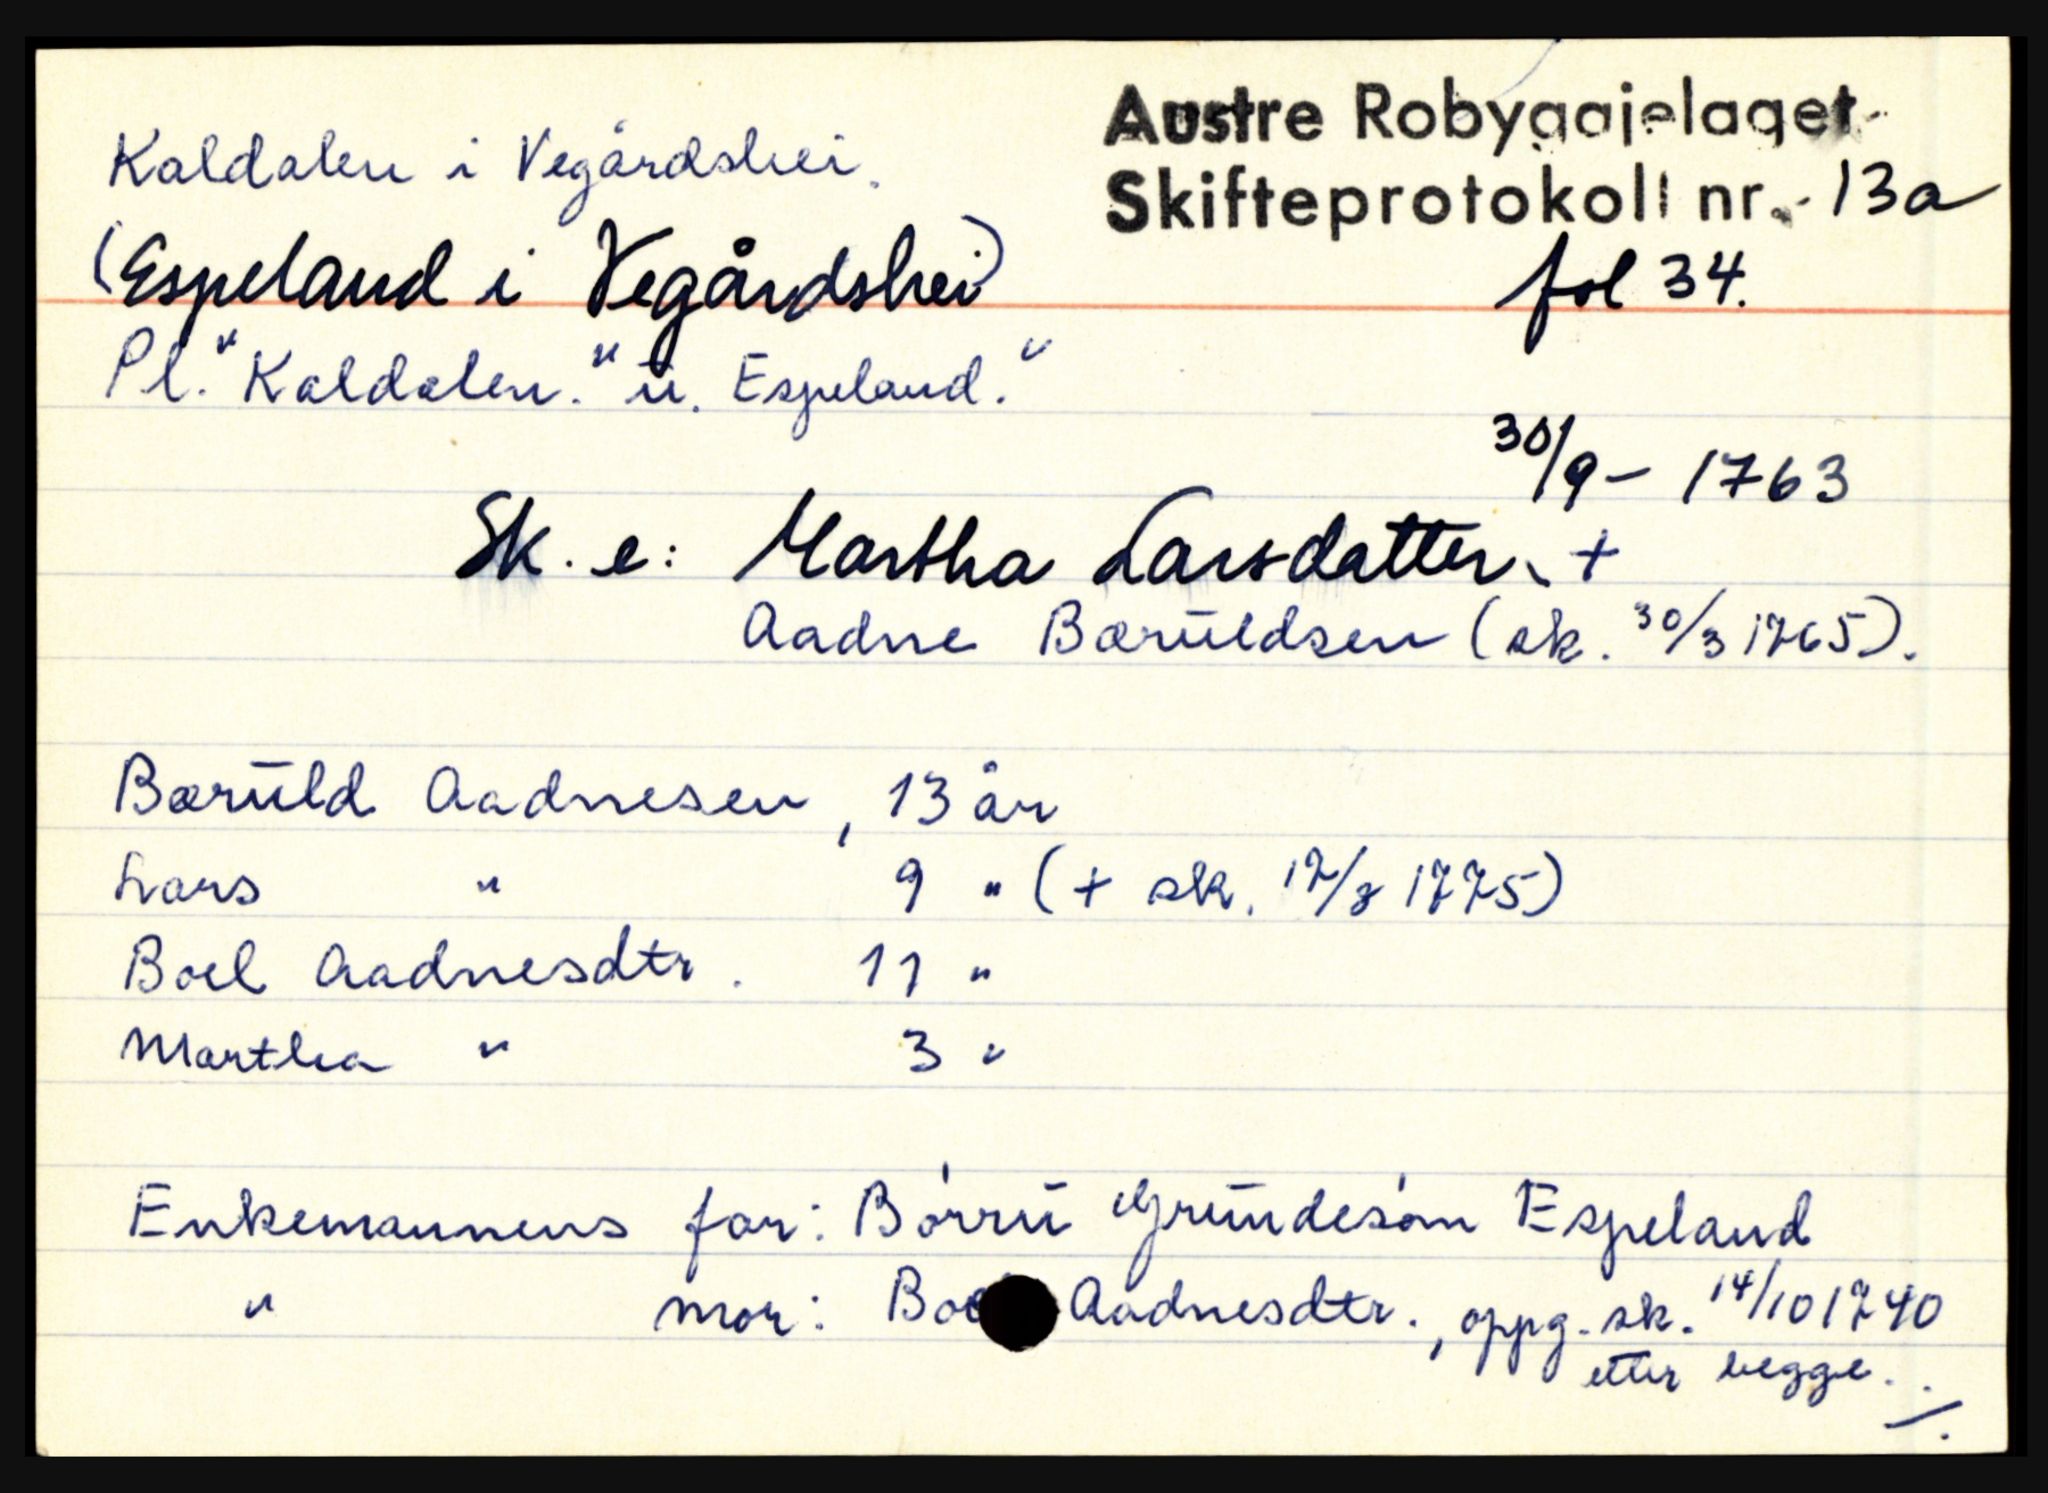 Austre Robyggjelaget
Skifteprotokoll nr. 13a
fol 34.
Kaldalen i Vegårdshei.
(Espeland i Vegårdshei)
Pl. "Kaldalen." u. Espeland."
30/9 - 1763
Sk. e: Martha Larsdatter, +
Aadne Bæruldsen (sk. 30/3 1765).
Bæruld Aadnesen, 13 år
Lars " 9 " (+ sk. 17/3 1775)
Boel Aadnesdtr. 11 "
Martha " 3 "
Enkemannens far: Børru Grundesøn Espeland
" mor: Boel Aadnesdtr., oppg. sk. 14/10 1740
etter begge.